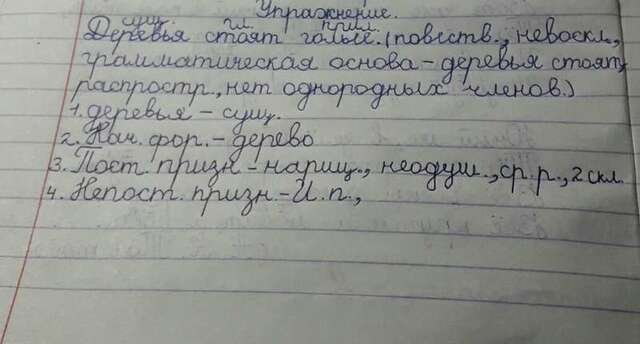 Упражнение.
сущ. гл. прил.
Деревья стоят голые. (повеств., невоскл.,
грамматическая основа - деревья стоят,
распростр., нет однородных членов.)
1. деревья - сущ.
2. Нач. фор. - дерево
3. Пост. призн. - нариц., неодуш., ср. р., 2 скл.
4. Непост. призн. - И. п.,